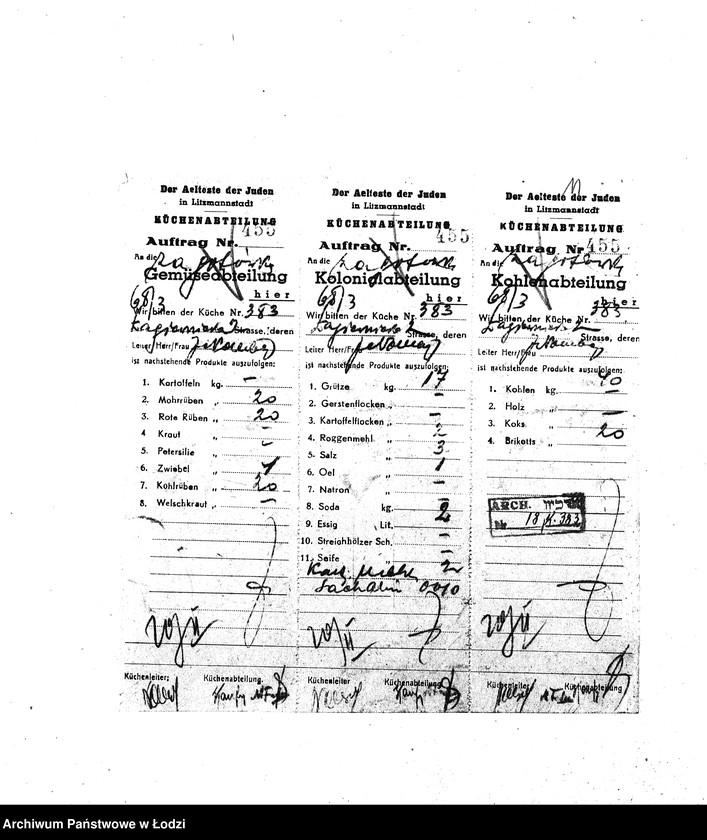 Der Aelteste der Juden
in Litzmannstadt
KÜCHENABTEILUNG
455
Auftrag Nr.
An die
Gemüseabteilung
68/3 hier
Wir bitten der Küche Nr. 383
Strasse, deren
Leiter Herr/Frau
ist nachstehende Produkte auszufolgen:
1. Kartoffeln kg. —
2. Mohrrüben „ 20
3. Rote Rüben „ 20
4 Kraut „ —
5. Petersilie „ —
6. Zwiebel „ 1
7. Kohlrüben „ 20
8. Welschkraut „ —
Küchenleiter: Küchenabteilung.
Der Aelteste der Juden
in Litzmannstadt
KÜCHENABTEILUNG
455
Auftrag Nr.
An die
Kolonialabteilung
68/3 hier
Wir bitten der Küche Nr. 383
Strasse, deren
Leiter Herr/Frau
ist nachstehende Produkte auszufolgen:
1. Grütze kg. 17
2. Gerstenflocken „ —
3. Kartoffelflocken „ —
4. Roggenmehl „ 2
5. Salz „ 3
6. Oel „ 1
7. Natron „ —
8. Soda kg. 2
9. Essig Lit. —
10. Streichhölzer Sch. —
11. Seife „ —
2
Sacharin 0,010
Küchenleiter Küchenabteilung
Der Aelteste der Juden
in Litzmannstadt
KÜCHENABTEILUNG
Auftrag Nr 455
An die
Kohlenabteilung
68/3 hier
Wir bitten der Küche Nr. 383
Strasse, deren
Leiter Herr/Frau
ist nachstehende Produkte auszufolgen:
10
1. Kohlen kg. —
2. Holz „ —
3. Koks „ 20
4. Briketts „ —
ARCH.
Nr 18 K. 383
Küchenleiter Küchenabteilung
Archiwum Państwowe w Łodzi